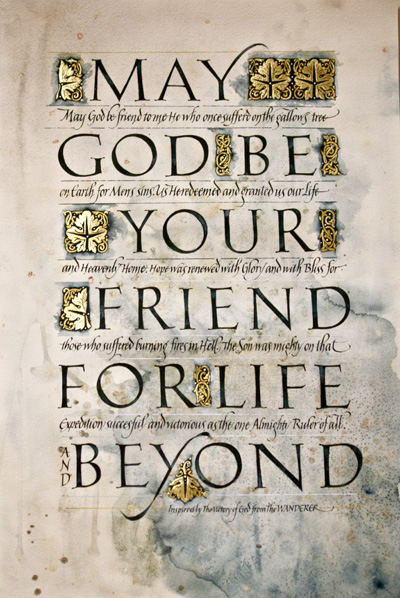 MAY
May God be friend to me He who once sufferd on the gallows tree
GOD BE
on Earth for Mens sins. Us He redeemed and granted us our Life
YOUR
and Heavenly Home: Hope was renewed with Glory and with Bliss for
FRIEND
those who suffered burning fires in Hell. The Son was mighty on that
FOR LIFE
Expedition successful and victorious as the one Almighty Ruler of all.
AND BEYOND
Inspired by The Victory of God from The WANDERER